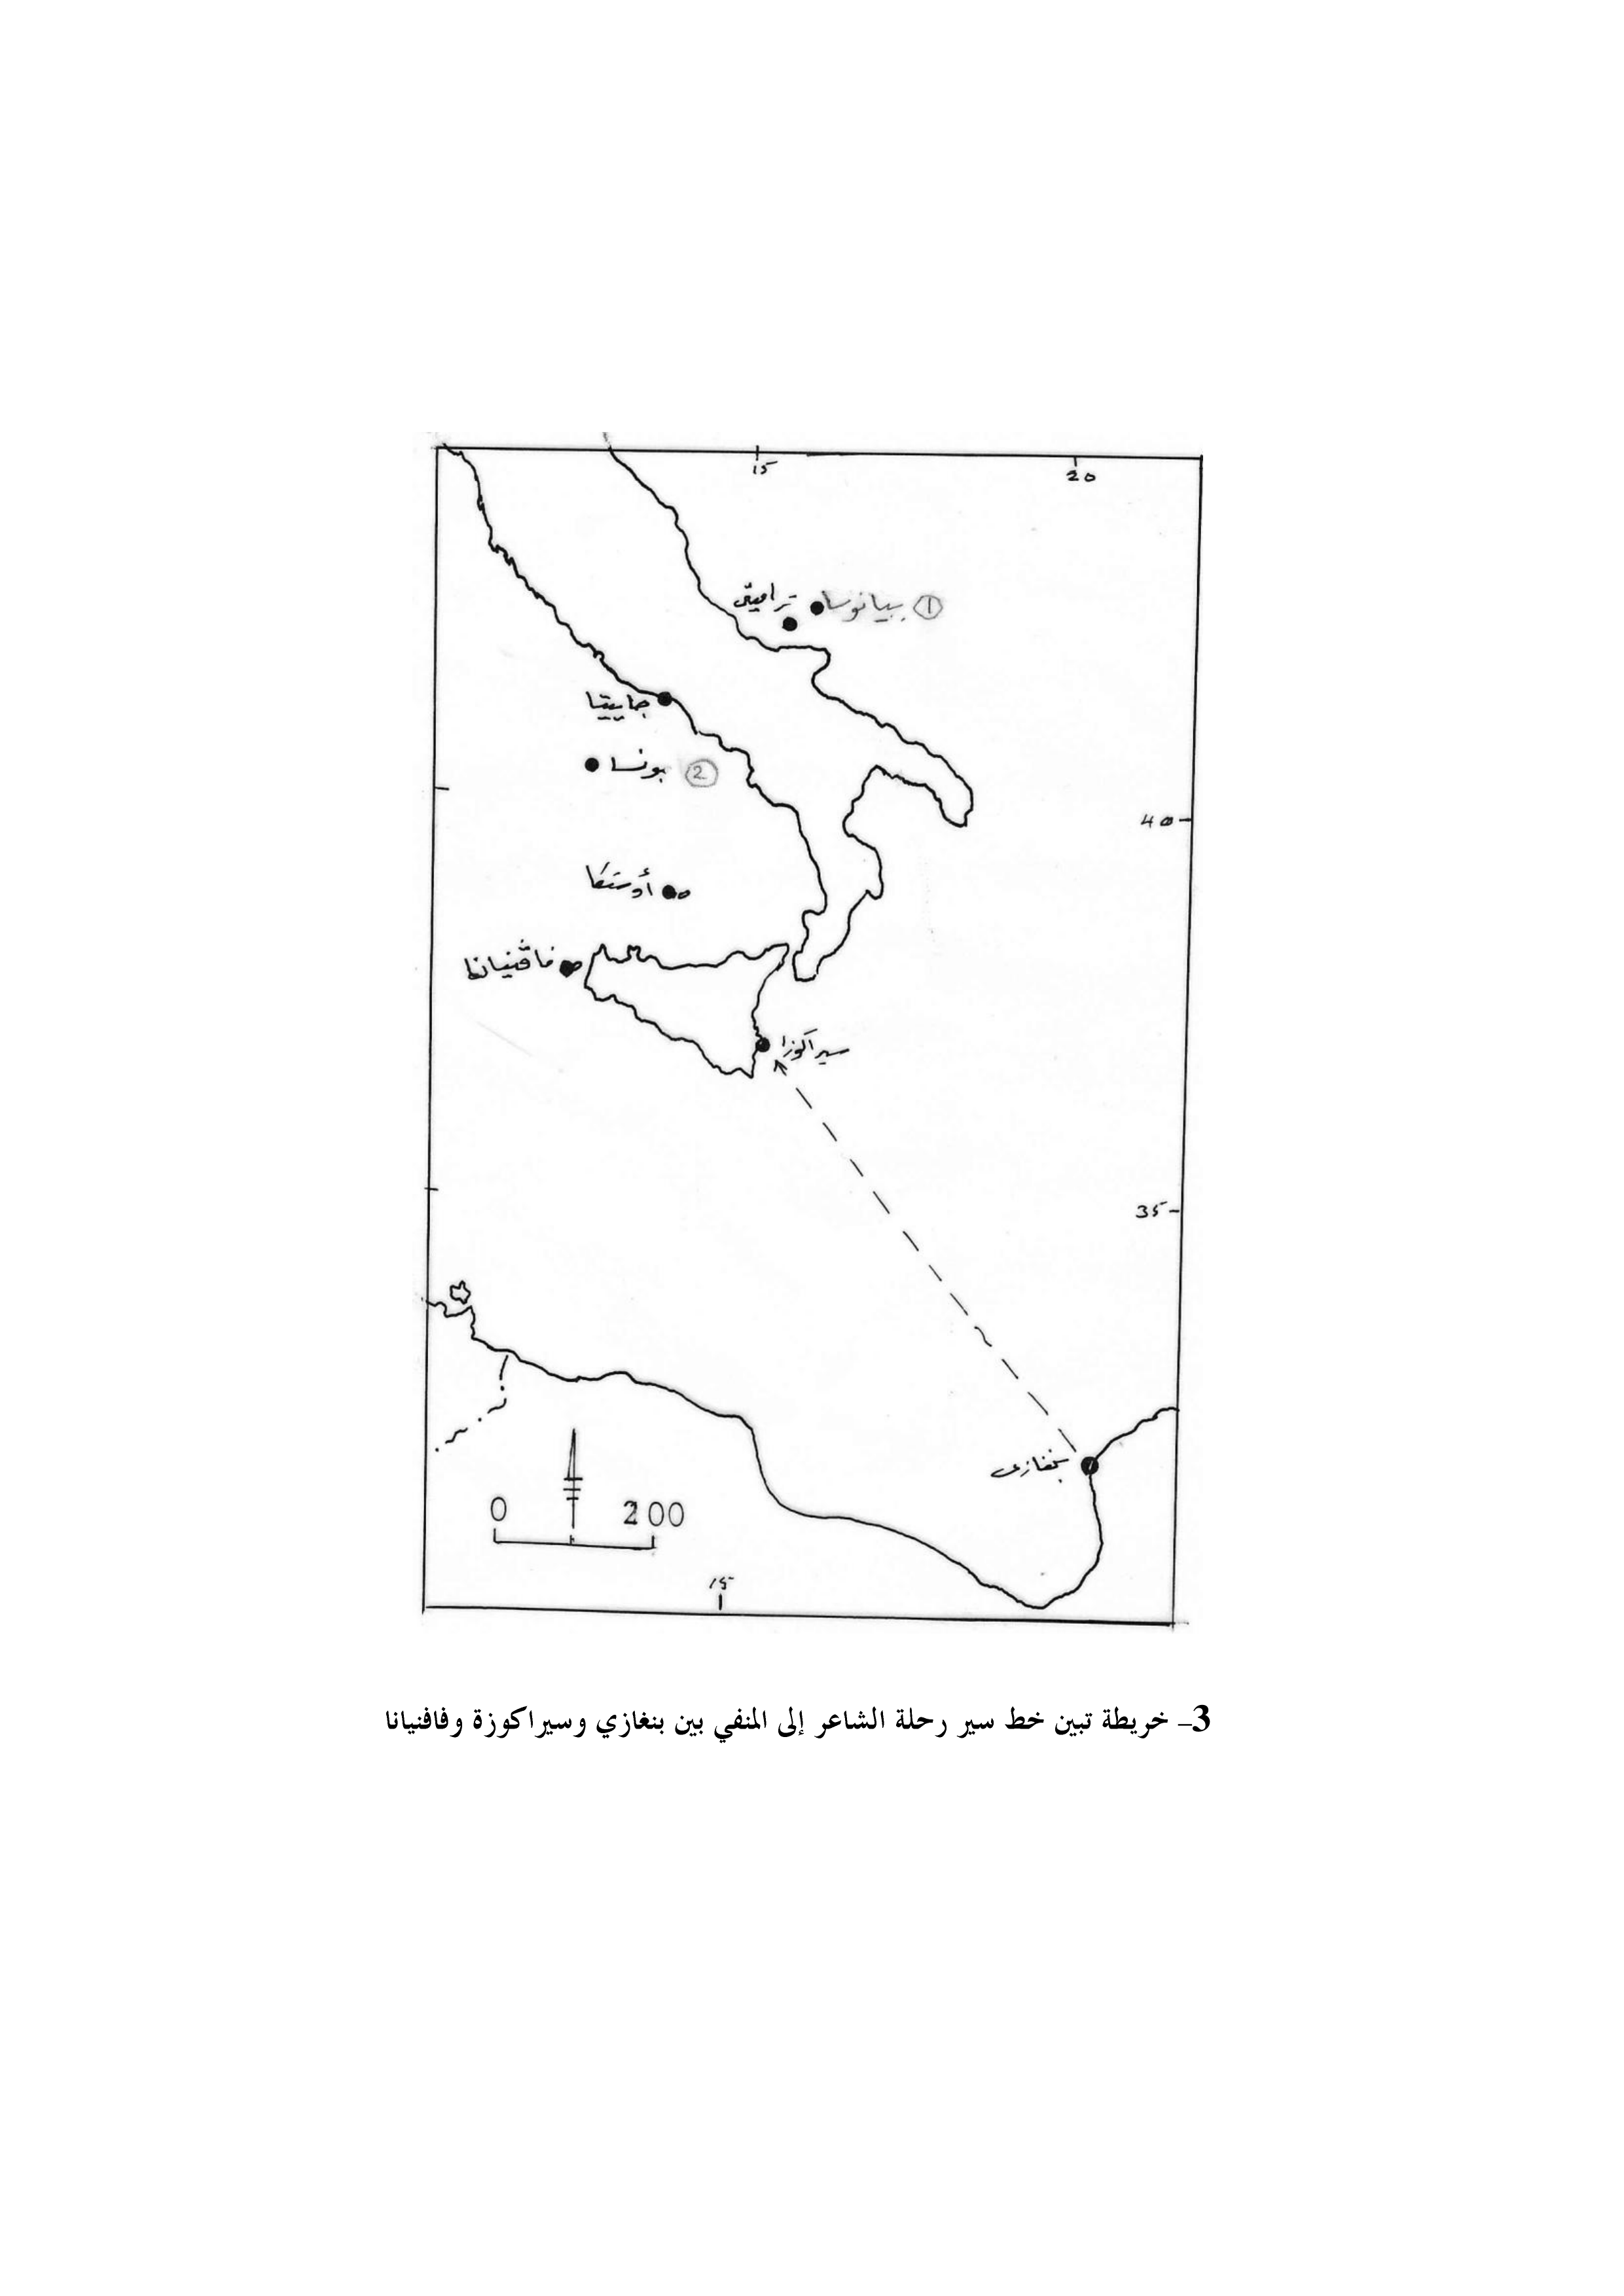 15
20
① بيانوسا
تراميتى
جاييتا
② بونسا
40
أوستكا
فاڤنيانا
سيراكوزا
35
بنغازى
0 200
15
3– خريطة تبين خط سير رحلة الشاعر إلى المنفي بين بنغازي وسيراكوزة وفافنيانا